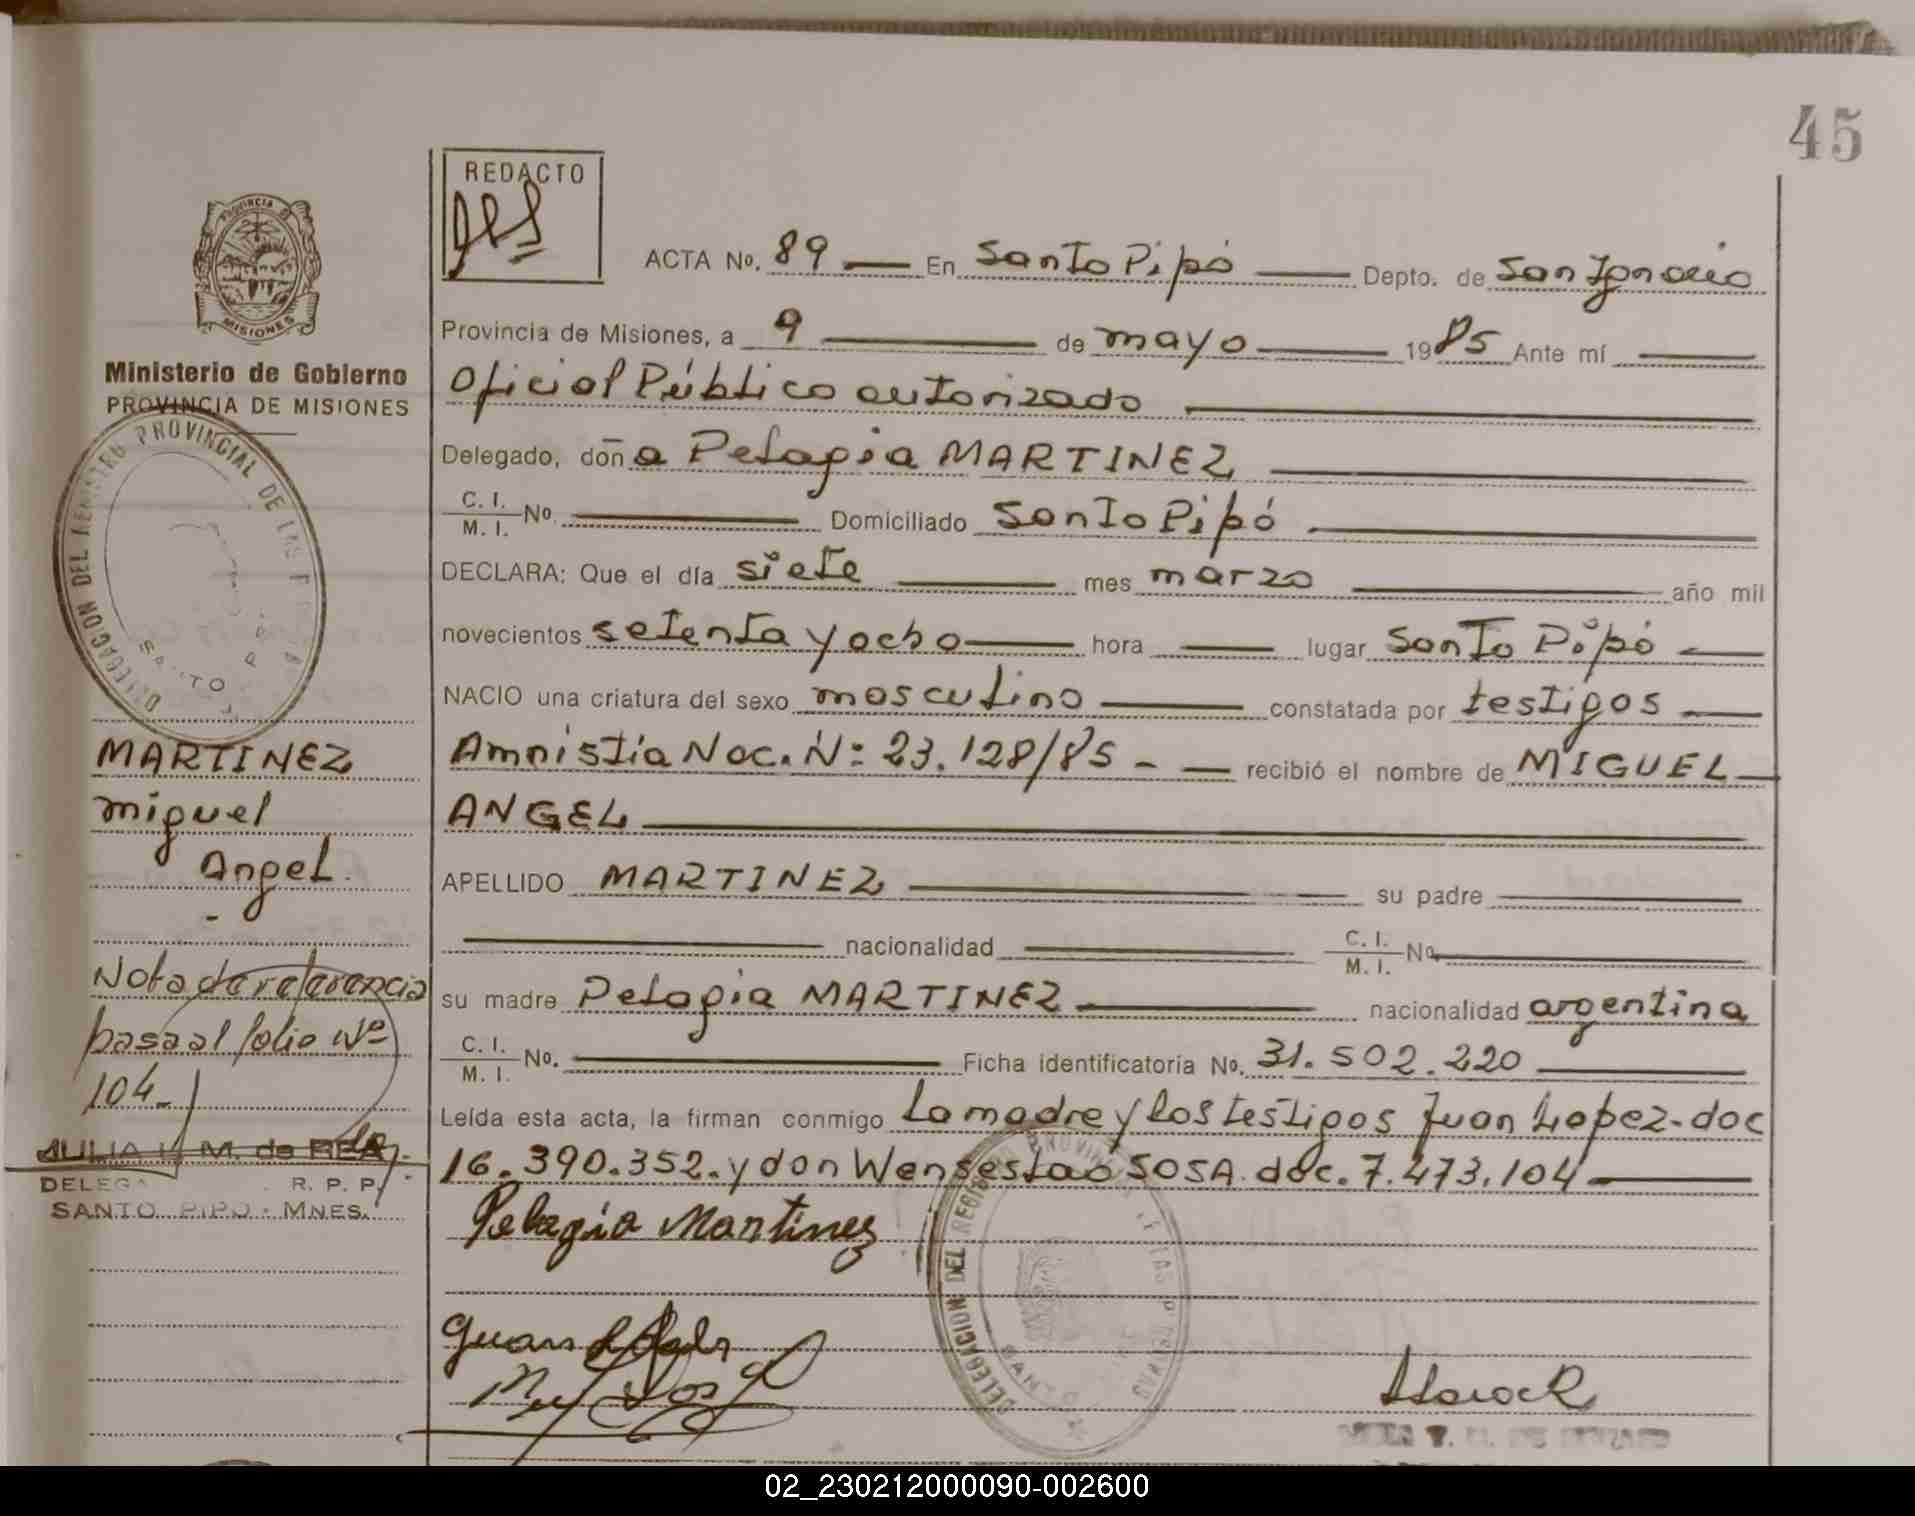 45
REDACTO
ACTA No. 89 En Santo Pipó Depto. de San Ignacio
Provincia de Misiones, a 9 de mayo 1985 Ante mí
Oficial Público autorizado
Delegado, doña Pelagia MARTINEZ
C. I. M. I. No. Domiciliado Santo Pipó
DECLARA: Que el día siete mes marzo año mil
novecientos setenta y ocho hora lugar Santo Pipó
NACIO una criatura del sexo masculino constatada por testigos
Amnistia Nac. N: 23.128/85 - recibió el nombre de MIGUEL
ANGEL
APELLIDO MARTINEZ su padre
nacionalidad C. I. M. I. No.
su madre Pelagia MARTINEZ nacionalidad argentina
C. I. M. I. No. Ficha identificatoria No. 31.502.220
Leída esta acta, la firman conmigo La madre y los testigos Juan Lopez-doc
16.390.352. y don Wenseslao SOSA. doc. 7.473.104
Pelagia Martinez
PROVINCIA DE
MISIONES
Ministerio de Gobierno
PROVINCIA DE MISIONES
DELEGACION DEL REGISTRO PROVINCIAL DE LAS
SANTO
MARTINEZ
miguel
Angel.
Nota de referencia
pasa al folio Nº
104-
JULIA M. de REA
DELEGA R. P. P.
SANTO PIPO - MNES.
DELEGACION DEL REGISTRO PROVIN
02_230212000090-002600